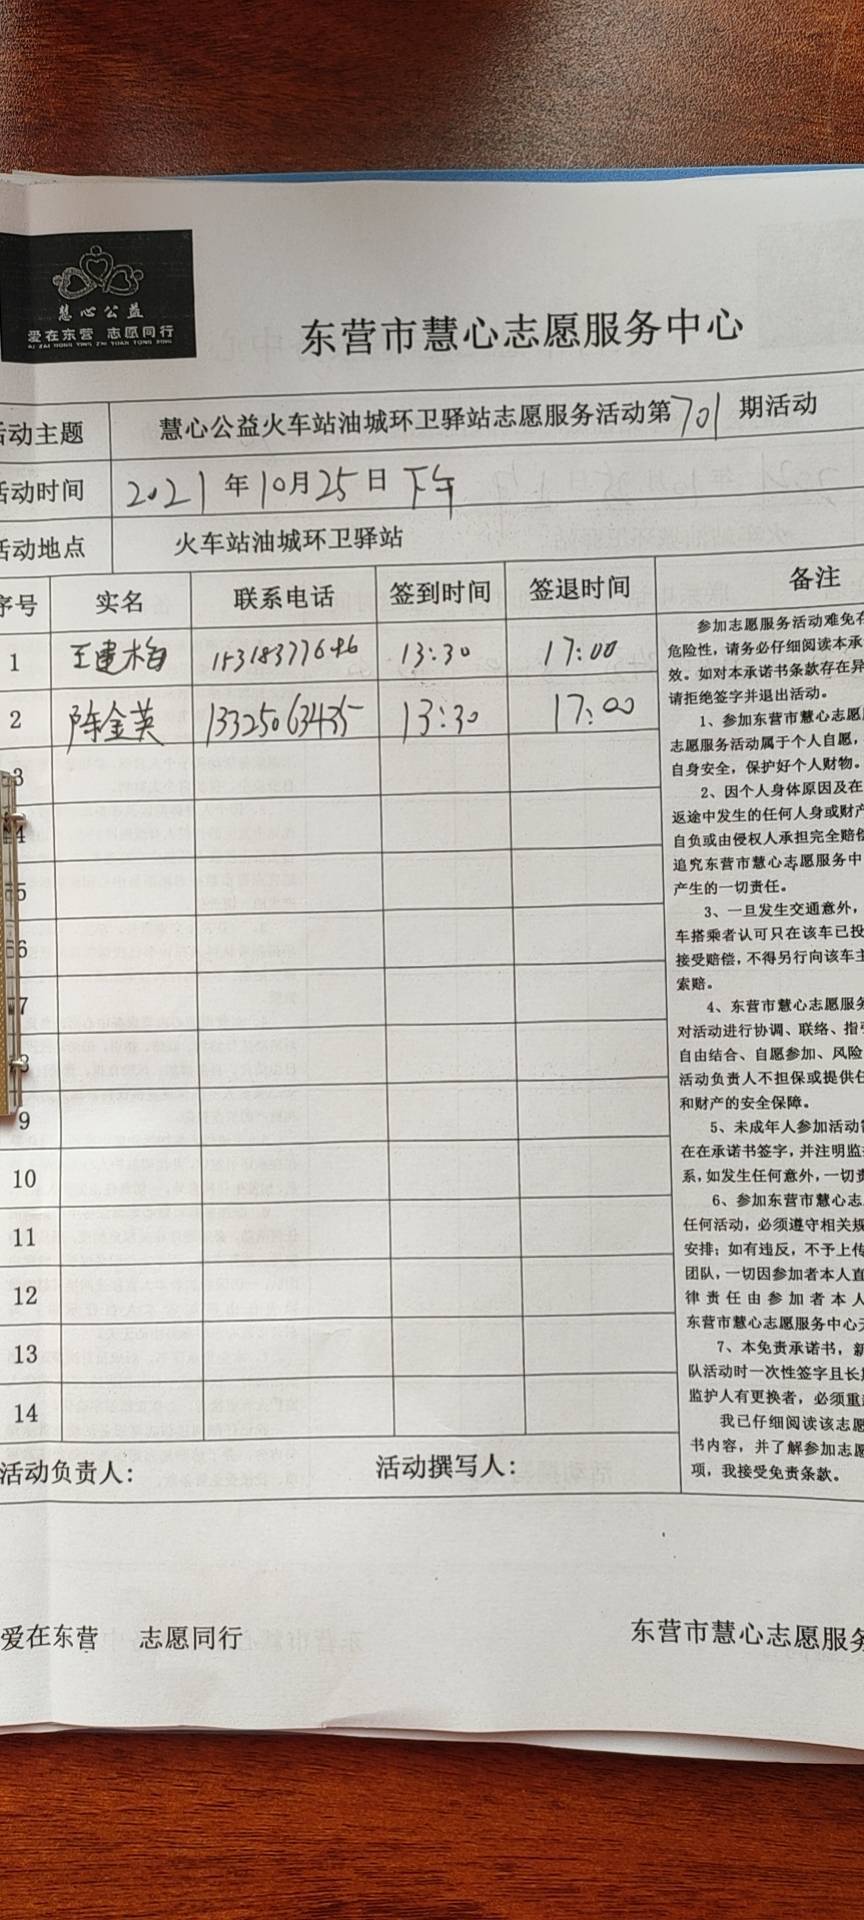 慧心公益
爱在东营 志愿同行
AI ZAI DONG YING ZHI YUAN TONG XING
东营市慧心志愿服务中心
活动主题 慧心公益火车站油城环卫驿站志愿服务活动第701期活动
活动时间 2021年10月25日下午
活动地点 火车站油城环卫驿站
序号 实名 联系电话 签到时间 签退时间 备注
1 王建梅 13:30 17:00
2 陈金英 13325063435 13:30 17:00
3
4
5
6
7
8
9
10
11
12
13
14
参加志愿服务活动难免存
危险性，请务必仔细阅读本承
效。如对本承诺书条款存在异
请拒绝签字并退出活动。
1、参加东营市慧心志愿
志愿服务活动属于个人自愿，
自身安全，保护好个人财物。
2、因个人身体原因及在
返途中发生的任何人身或财产
自负或由侵权人承担完全赔偿
追究东营市慧心志愿服务中
产生的一切责任。
3、一旦发生交通意外，
车搭乘者认可只在该车已投
接受赔偿，不得另行向该车主
索赔。
4、东营市慧心志愿服务
对活动进行协调、联络、指
自由结合、自愿参加、风险
活动负责人不担保或提供任
和财产的安全保障。
5、未成年人参加活动
在在承诺书签字，并注明监
系，如发生任何意外，一切责
6、参加东营市慧心志
任何活动，必须遵守相关规
安排；如有违反，不予上传
团队，一切因参加者本人直
律责任由参加者本人
东营市慧心志愿服务中心无
7、本免责承诺书，新
队活动时一次性签字且长
监护人有更换者，必须重
我已仔细阅读该志愿
书内容，并了解参加志愿
项，我接受免责条款。
活动负责人： 活动撰写人：
爱在东营 志愿同行 东营市慧心志愿服务